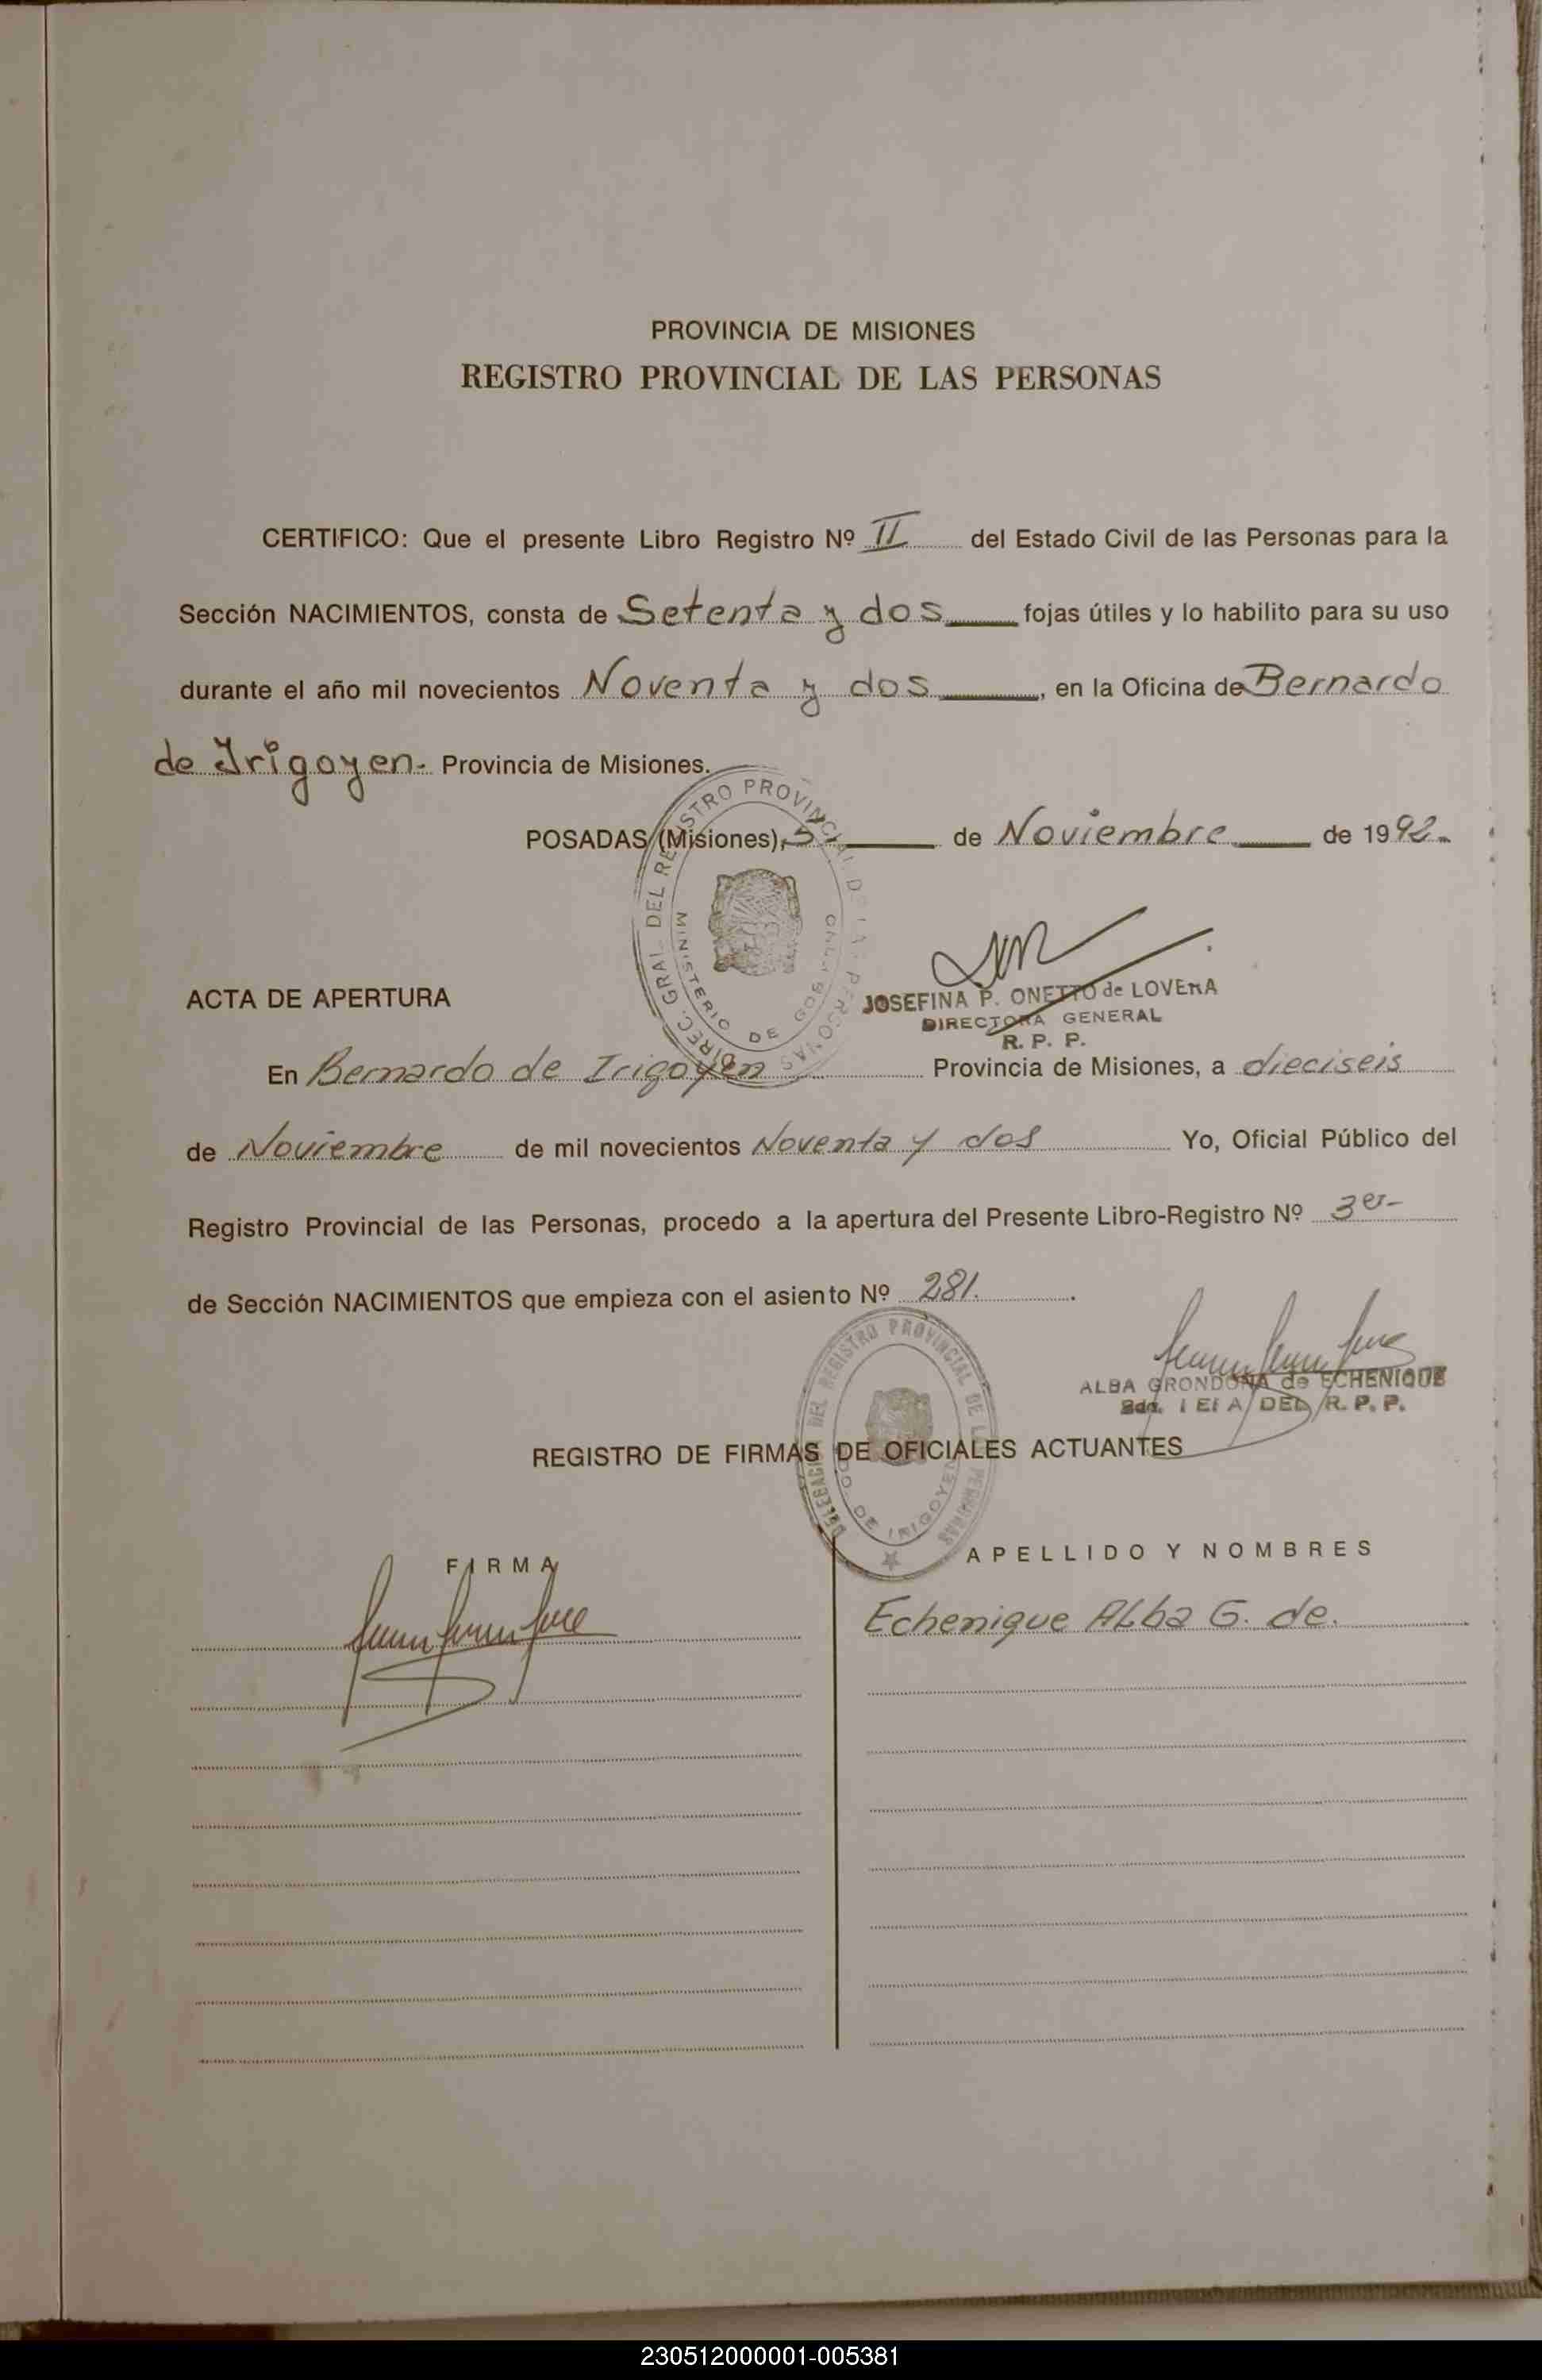 PROVINCIA DE MISIONES
REGISTRO PROVINCIAL DE LAS PERSONAS
CERTIFICO: Que el presente Libro Registro Nº II del Estado Civil de las Personas para la
Sección NACIMIENTOS, consta de Setenta y dos fojas útiles y lo habilito para su uso
durante el año mil novecientos Noventa y dos, en la Oficina de Bernardo
de Irigoyen.- Provincia de Misiones.
POSADAS (Misiones), 5 de Noviembre de 1992.-
DIREC. GRAL. DEL REGISTRO PROVINCIAL DE LAS PERSONAS
MINISTERIO DE GOB
JOSEFINA P. ONETTO de LOVERA
DIRECTORA GENERAL
R. P. P.
ACTA DE APERTURA
En Bernardo de Irigoyen Provincia de Misiones, a dieciseis
de Noviembre de mil novecientos Noventa y dos Yo, Oficial Público del
Registro Provincial de las Personas, procedo a la apertura del Presente Libro-Registro Nº 3er-
de Sección NACIMIENTOS que empieza con el asiento Nº 281.
DELEGACION DEL REGISTRO PROVINCIAL DE LAS PERSONAS
DE IRIGOYEN
ALBA GRONDONA de ECHENIQUE
DEL R. P. P.
REGISTRO DE FIRMAS DE OFICIALES ACTUANTES
FIRMA APELLIDO Y NOMBRES
Echenique Alba G. de.
230512000001-005381